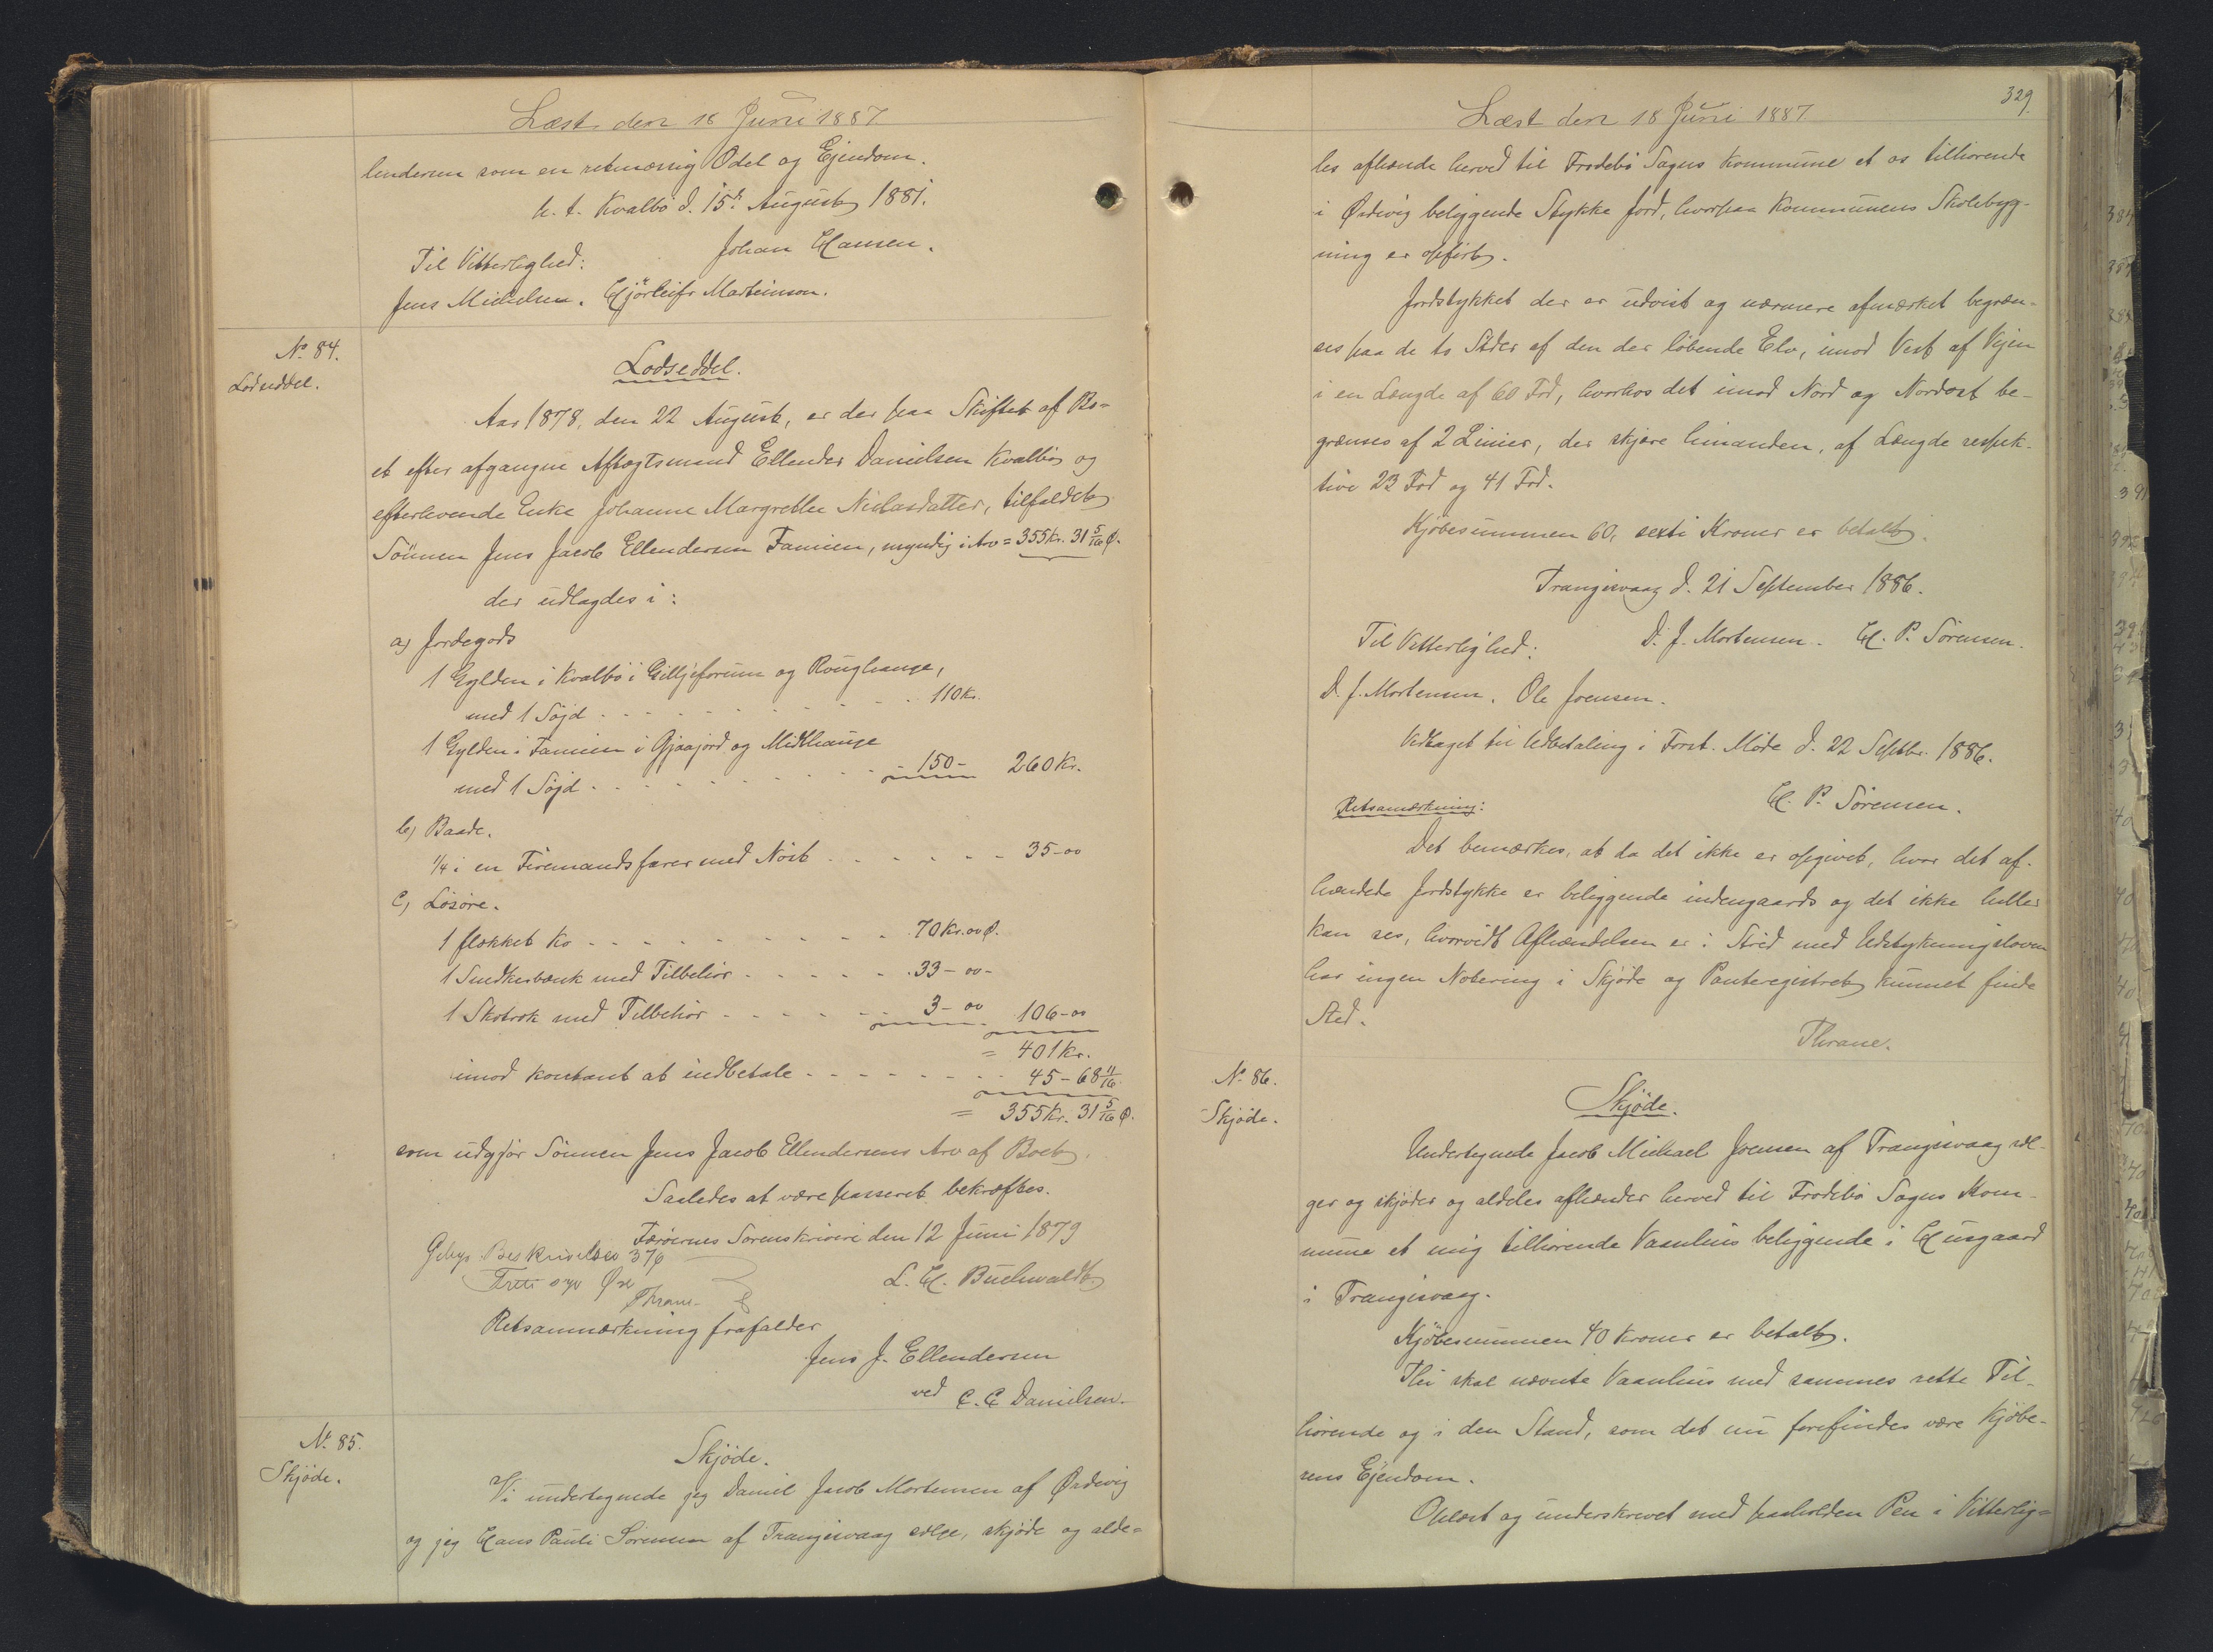 Læst den 18 Juni 1887
lendersen som en retmæssig Odel og Ejendom.
h. t. Kvalbö d. 15d August 1881.
Johan Hansen.
Til Vitterlighed:
Jens Michelsen. Hjörleifr Marteinson.
No 84.
Lodseddel.
Lodseddel.
Aar 1878, den 22 August, er der paa Skiftet af Bo-
et efter afgangne Aftægtsmand Ellender Danielsen Kvalbö og
efterlevende Enke Johanne Margrethe Niclasdatter, tilfaldet
Sönnen Jens Jacob Ellendersen Famien, myndig i Arv = 355 Kr. 31 5/16 Ø.
der udlagdes i:
a) Jordegods
1 Gylden i Kvalbö i Gilljeforum og Roughauge,
med 1 Söjd . . . . . . . 110 Kr.
1 Gylden i Famien i Gjaajord og Midthauge
med 1 Söjd . . . . . . . 150 - 260 Kr.
b) Baade.
1/4 i en Firemandsfarer med Nöst . . . . . . 35-00
c) Lösöre.
1 flekket Ko . . . . . . . 70 Kr. 00 Ø.
1 Snedkerbænk med Tilbehör . . . . . . 33 - 00 -
1 Skotrok med Tilbehör . . . . . . 3 - 00 106-00
= 401 Kr.
imod kontant at indbetale . . . . . . . 45 - 68 11/16
= 355 Kr. 31 5/16 Ø.
som udgjör Sönnen Jens Jacob Ellendersens Arv af Boet.
Saaledes at være passeret bekræftes.
Færöernes Sorenskriveri den 12 Juni 1879
Gebyr Beskrivelses 37 Ø
L. H. Buchwaldt
Treti syv Øre
Thrane
Retsanmærkning frafalder
Jens J. Ellendersen
ved C. E. Danielsen.
No 85.
Skjöde.
Skjöde.
Vi undertegnede jeg Daniel Jacob Mortensen af Ørdevig
og jeg Hans Pauli Sörensen af Trangisvaag sælge, skjöde og alde-
329
Læst den 18 Juni 1887
les afhænde herved til Frodebö Sogns Kommune et os tilhörende
i Ørdevig beliggende Stykke Jord, hvorpaa Kommunens Skolebyg-
ning er opfört.
Jordstykket der er udvist og nærmere afmærket begræn-
ses paa de to Sider af den der löbende Elv, imod Vest af Vejen
i en Længde af 60 Fod, hvorhos det imod Nord og Nordost be-
grænses af 2 Linier, der skjære hinanden, af Længde respek-
tive 23 Fod og 41 Fod.
Kjöbesummen 60, sexti Kroner er betalt.
Trangisvaag d. 21 September 1886.
D. J. Mortensen. H. P. Sörensen.
Til Vitterlighed:
D. J. Mortensen. Ole Joensen.
Vedtaget til Udbetaling i Forst. Möde d. 22 Septbr. 1886.
H. P. Sörensen.
Retsanmærkning:
Det bemærkes, at da det ikke er opgivet, hvor det af-
hændede Jordstykke er beliggende indengaards og det ikke heller
kan ses, hvorvidt Afhændelsen er i Strid med Udstykningsloven
har ingen Notering i Skjöde og Panteregistret kunnet finde
Sted.
Thrane.
No 86.
Skjöde.
Skjøde.
Undertegnede Jacob Michael Joensen af Trangisvaag sæl-
ger og skjöder og aldeles afhænder herved til Frodebö Sogns Kom-
mune et mig tilhörende Vaanhus beliggende i Husgaard
i Trangisvaag.
Kjöbesummen 40 Kroner er betalt.
Thi skal nævnte Vaanhus med sammes rette Til-
hörende og i den Stand, som det nu forefindes være Kjöbe-
rens Ejendom.
Oplæst og underskrevet med paaholden Pen i Vitterlig-